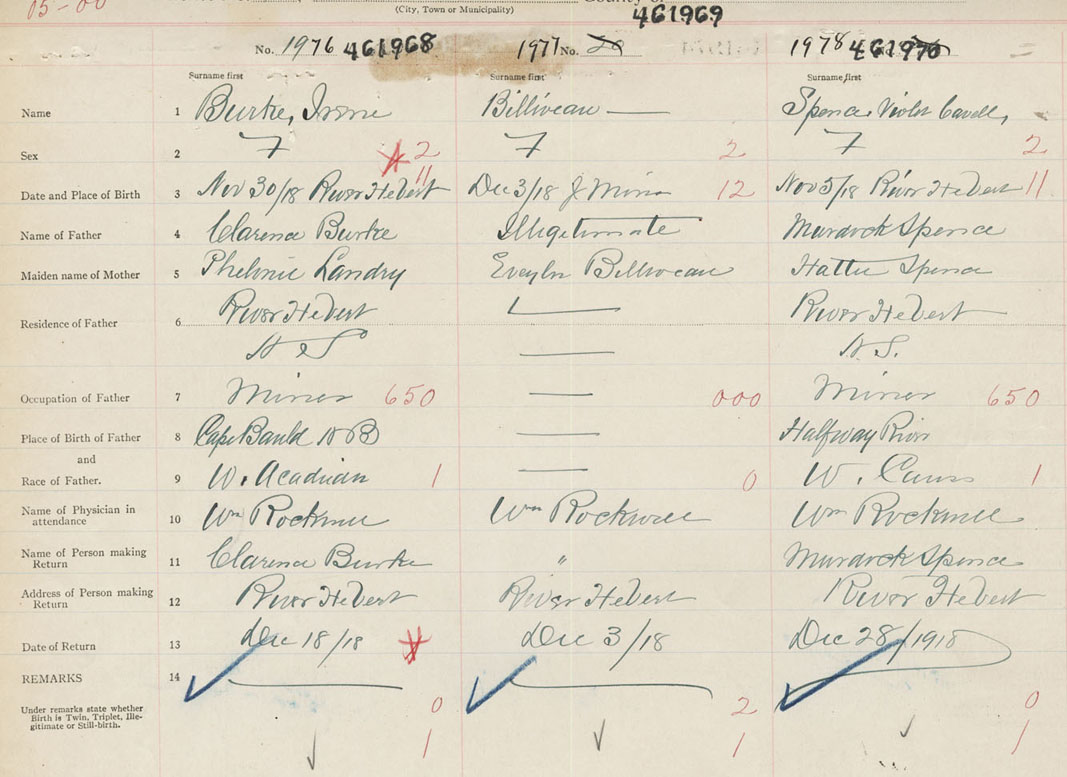 15-00
(City, Town or Municipality)
County of
461969
No. 1976 461968
1977 No.
1978 461970
Surname first
Surname first
Surname first
Name 1 Burke, Irene Billiveau — Spence, Violet Cavell,
Sex 2 F 2 F 2 F 2
11
Date and Place of Birth 3 Nov 30/18 River Hebert Dec 3/18 J Mines 12 Nov 5/18 River Hebert 11
Name of Father 4 Clarence Burke Illigetimate Murdock Spence
Maiden name of Mother 5 Landry Evelyn Billiveau Hattie Spence
River Hebert — River Hebert
Residence of Father 6
N S — N. S.
Occupation of Father 7 Miner 650 — 000 Miner 650
Place of Birth of Father 8 Cape Bauld N B — Halfway River
and
Race of Father. 9 W. Acadian 1 — 0 W. 1
Name of Physician in
attendance 10 Wm Rockwell Wm Rockwell Wm Rockwell
Name of Person making
Return 11 Clarence Burke " Murdock Spence
Address of Person making
Return 12 River Hebert River Hebert River Hebert
Date of Return 13 Dec 18/18 Dec 3/18 Dec 28/1918
REMARKS 14
Under remarks state whether
Birth is Twin, Triplet, Ille-
gitimate or Still-birth.
0 2 0
1 1 1